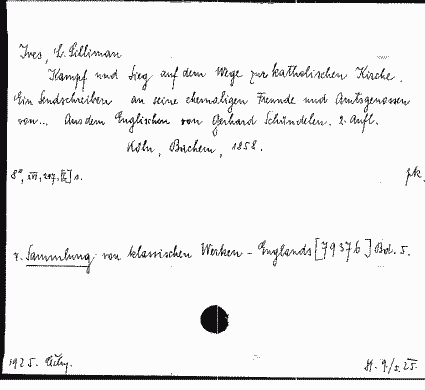 Ives, L. Silliman
Kampf und Sieg auf dem Wege zur katholischen Kirche.
Ein Sendschreiben an seine ehemaligen Freunde und Amtsgenossen
von... Aus dem Englischen von Gerhard Schündelen. 2. Aufl.
Köln, Bachem, 1858.
8°, XVI, 297, II] S.
v. Sammlung von klassischen Werken - Englands [79376] Bd. 5.
1925.
H. 9/5. 25.